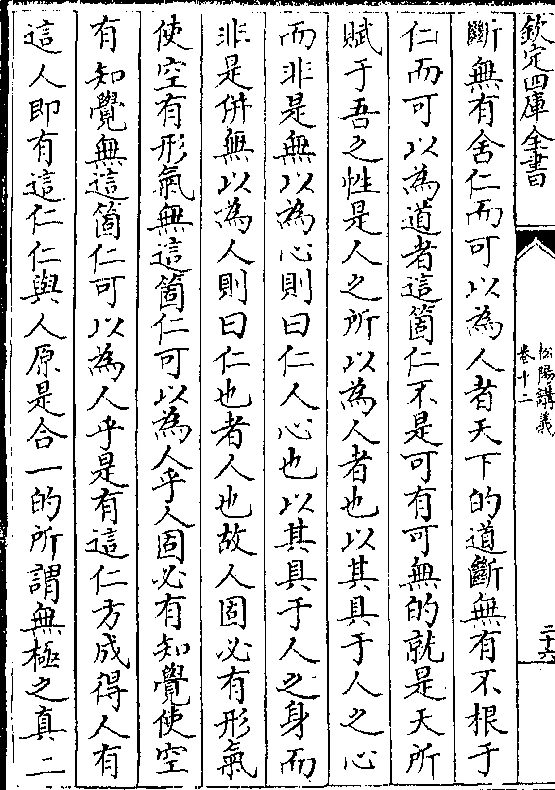 欽定四庫全書
松陽講義
卷十二
二十六
斷無有舍仁而可以為人者天下的道斷無有不根于
仁而可以為道者這箇仁不是可有可無的就是天所
賦于吾之性是人之所以為人者也以其具于人之心
而非是無以為心則曰仁人心也以其具于人之身而
非是併無以為人則曰仁也者人也故人固必有形氣
使空有形氣無這箇仁可以為人乎人固必有知覺使空
有知覺無這箇仁可以為人乎是有這仁方成得人有
這人即有這仁仁與人原是合一的所謂無極之真二